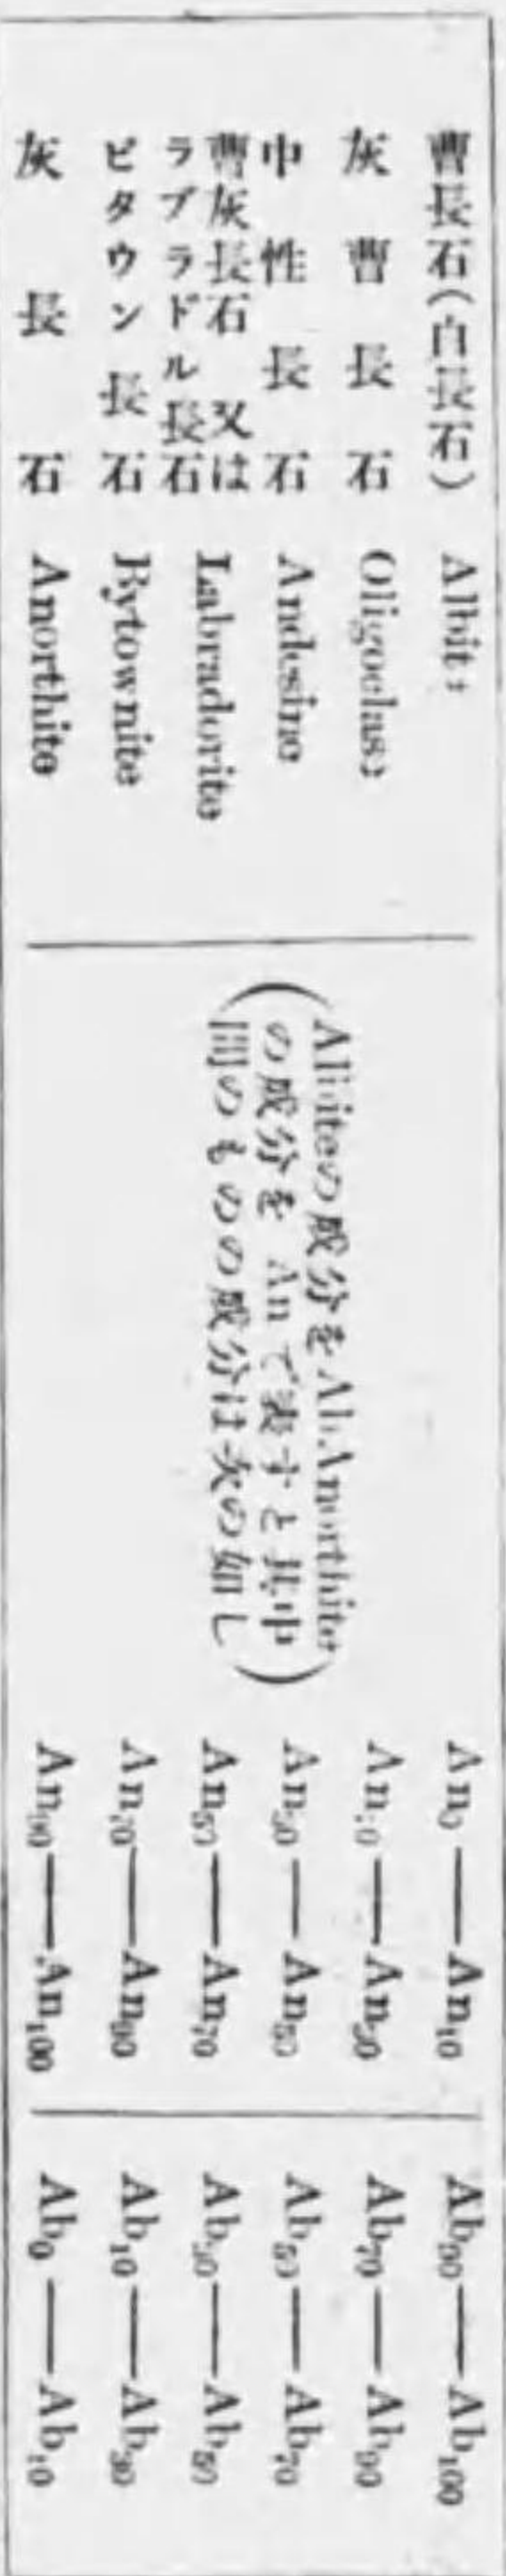 曹長石(白長石) Albite An₀——An₁₀ Ab₉₀——Ab₁₀₀
灰曹長石 Oligoclase An₁₀——An₃₀ Ab₇₀——Ab₉₀
中性長石 Andesine An₃₀——An₅₀ Ab₅₀——Ab₇₀
曹灰長石又は
ラブラドル長石 Labradorite An₅₀——An₇₀ Ab₃₀——Ab₅₀
ビタウン長石 Bytownite An₇₀——An₉₀ Ab₁₀——Ab₃₀
灰長石 Anorthite An₉₀——An₁₀₀ Ab₀——Ab₁₀
(Albiteの成分をAb Anorthite
の成分を Anで表すと其中
間のものの成分は次の如し)